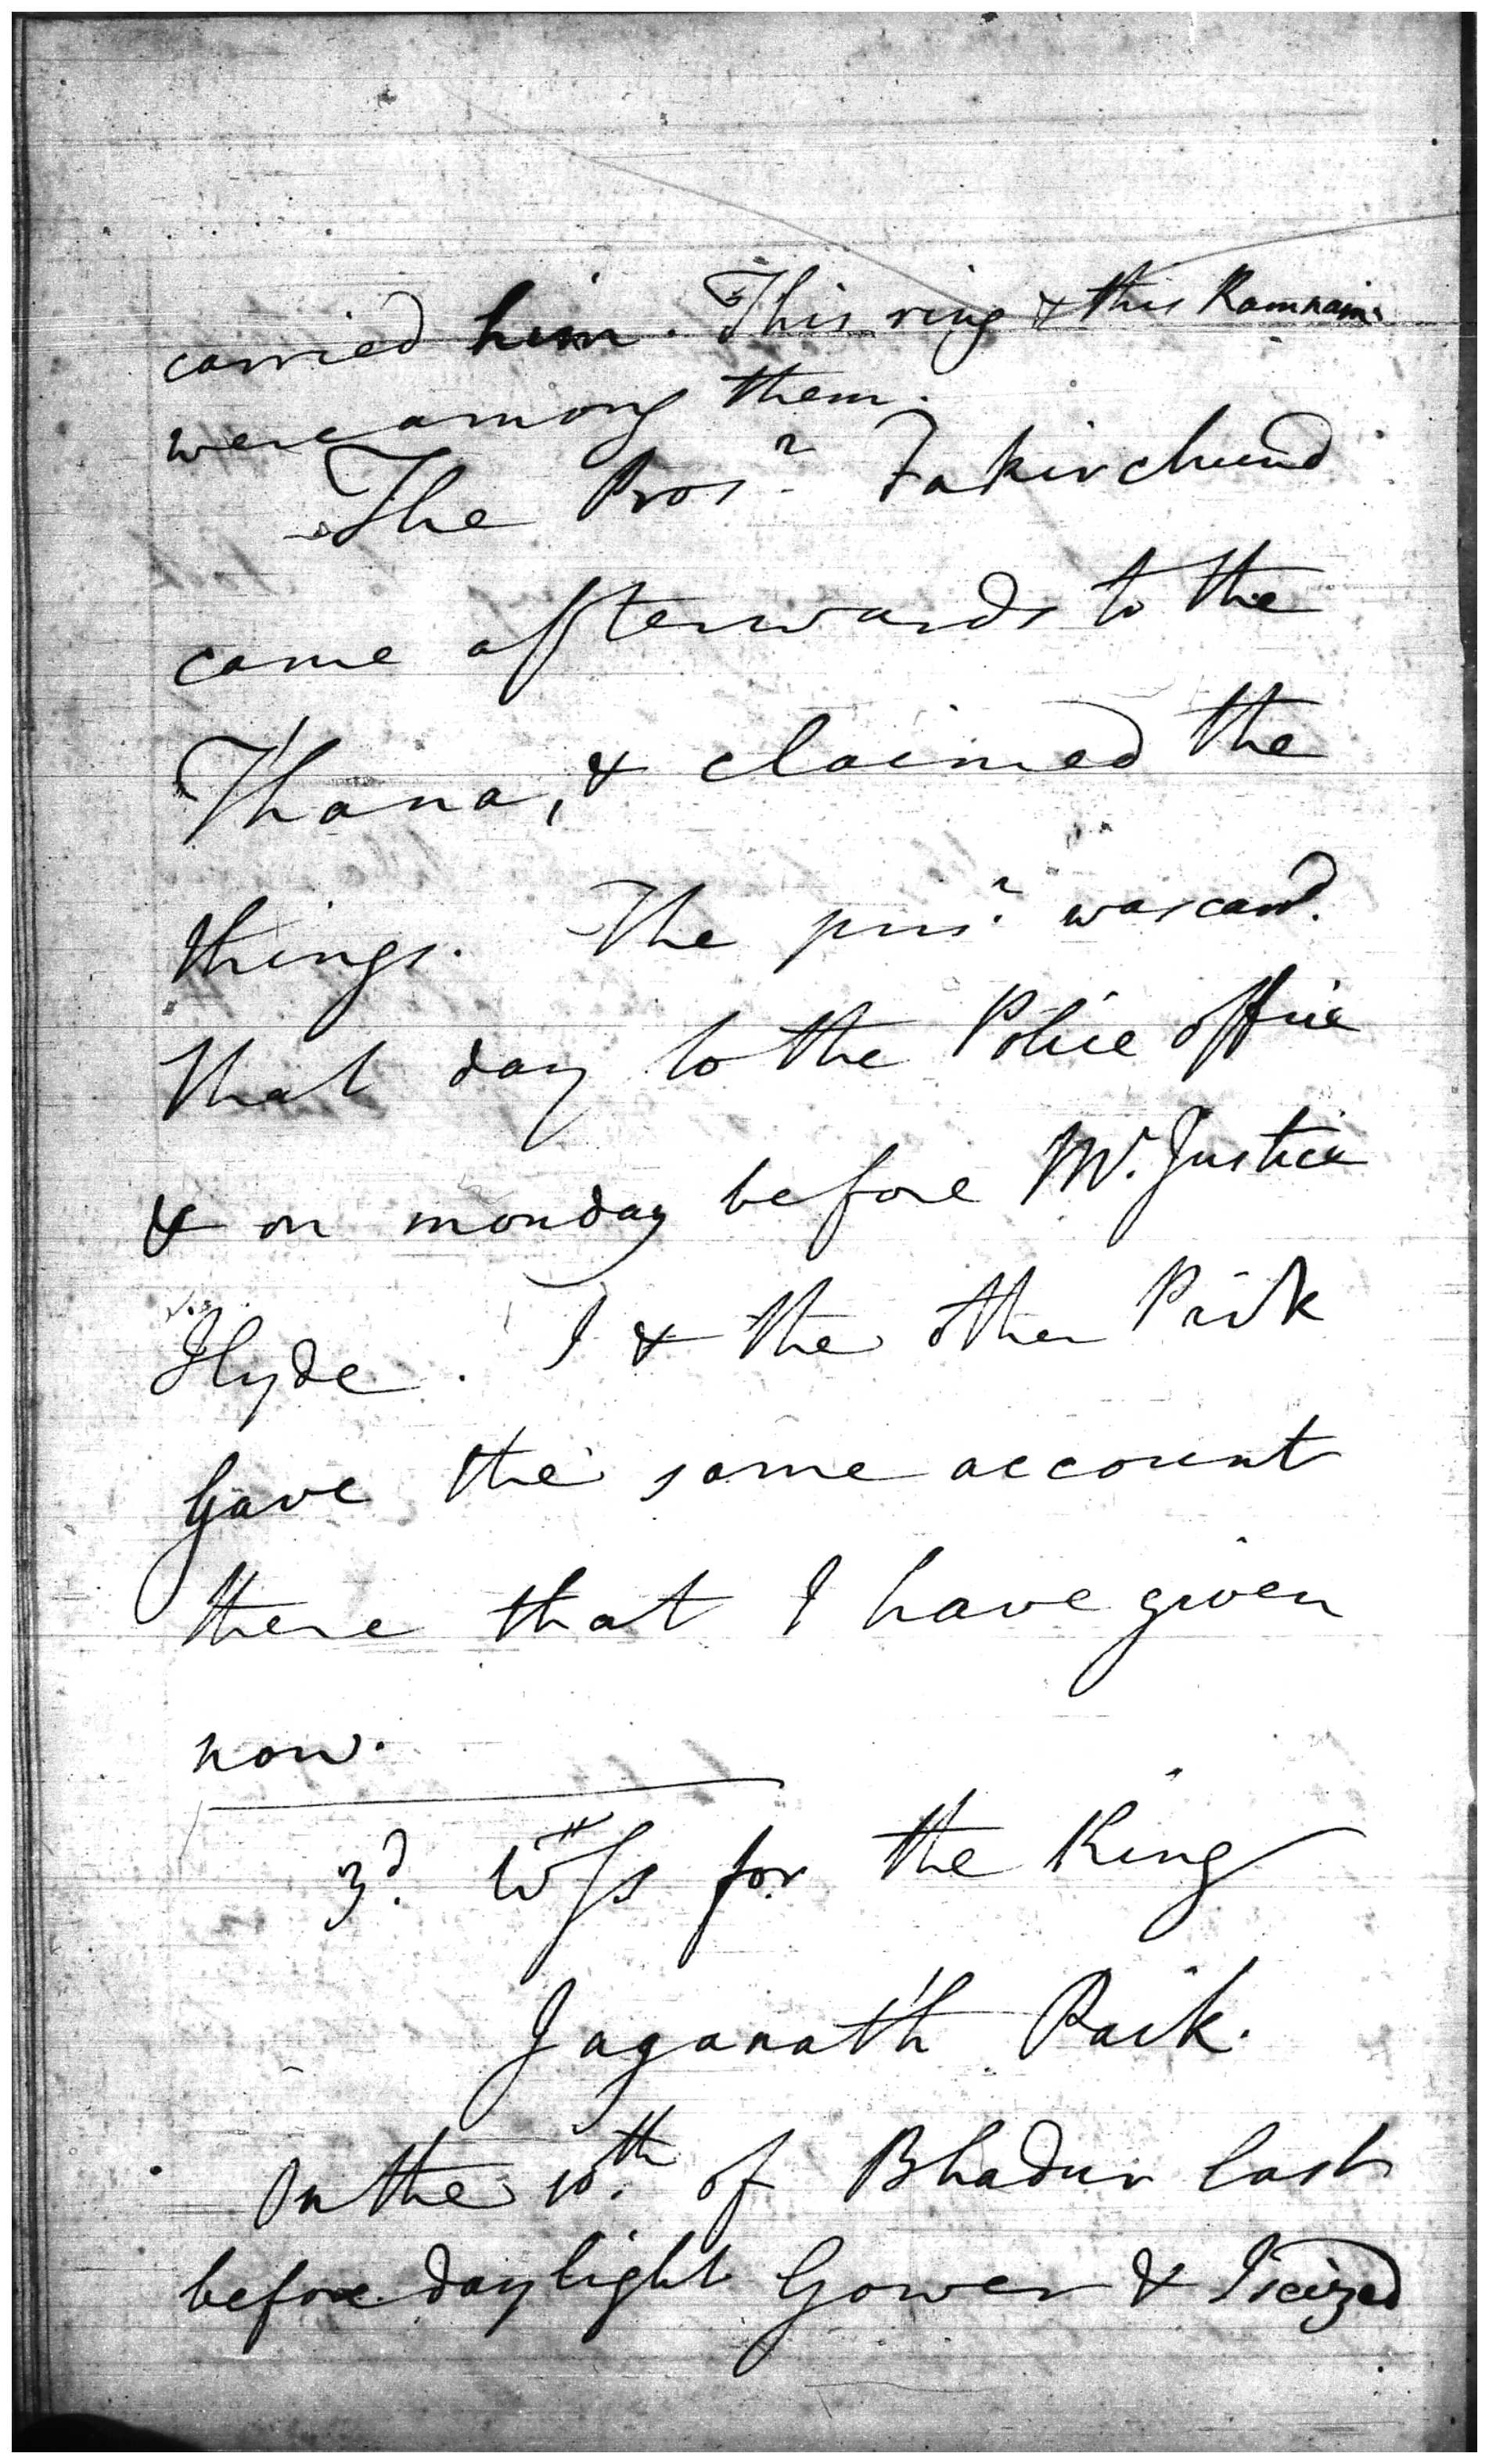 carried him. This ring & this Ramnam
were among them.
The Prosr. Fakirchund
came afterwards to the
Thana, & claimed the
things. The prisr. was card.
that day to the Police office
& on monday before Mr. Justice
Hyde. I & the other Paik
gave the same account
there that I have given
now.
3d. Wss for the King
Jaganath Paik.
On the 10th. of Bhadur last
before daylight Gower & I seized